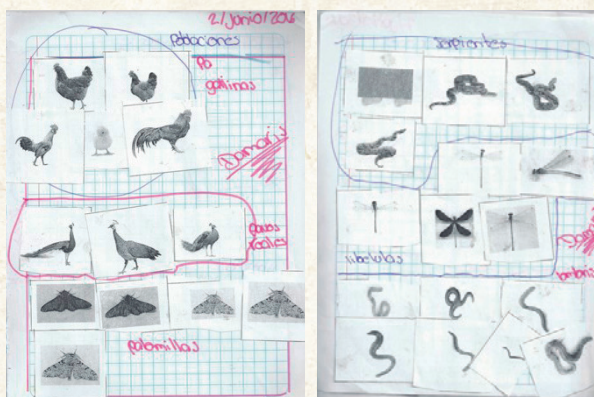 2/junio/2016
Poblaciones
Po
gallinas
Damaris
pavos
reales
palomillas
serpientes
libelulas